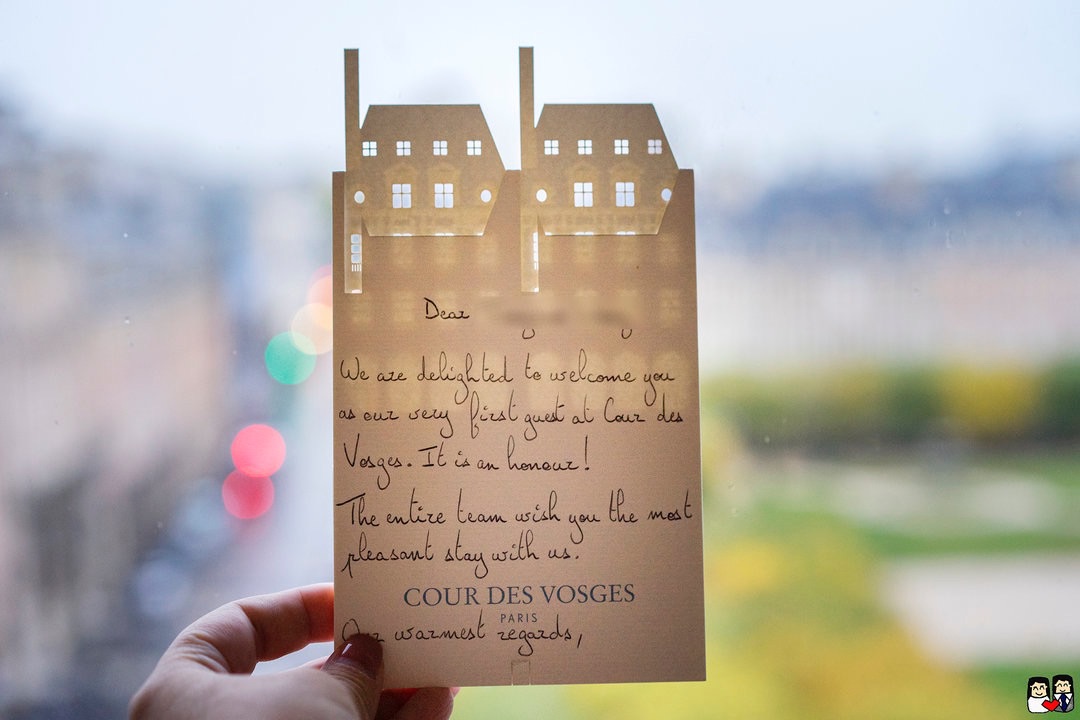 Dear
We are delighted to welcome you
as our very first guest at Cour des
Vosges. It is an honour!
The entire team wish you the most
pleasant stay with us.
COUR DES VOSGES
PARIS
Our warmest regards,